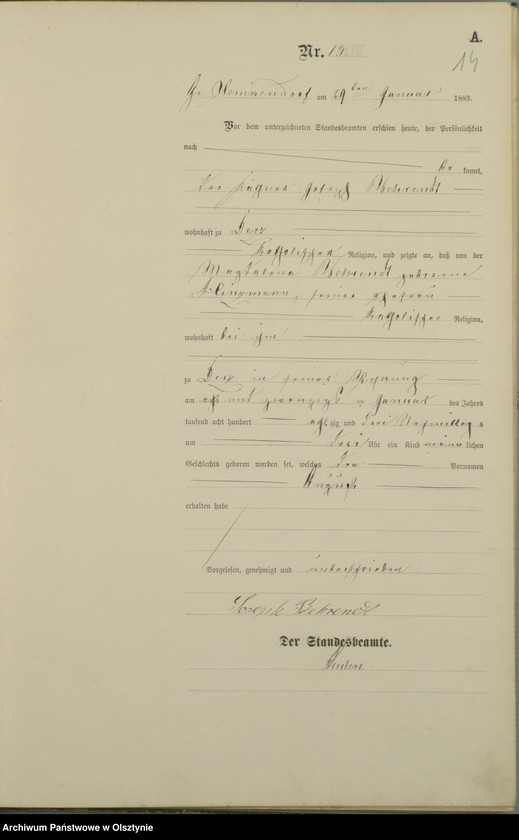 A.
Nr. 13
14
am 29ten Januar 1883.
Vor dem unterzeichneten Standesbeamten erschien heute, der Persönlichkeit
nach
be kannt,
der Joseph Behrendt
wohnhaft zu Derz
katholischer Religion, und zeigte an, daß von der
Magdalena Behrendt geborene
Klingmann, seiner Ehefrau
katholischer Religion,
wohnhaft bei ihm
zu Derz in seiner Wohnung
am acht und zwanzigsten Januar des Jahres
tausend acht hundert achtzig und drei Nachmittags
um drei Uhr ein Kind männlichen
Geschlechts geboren worden sei, welches den Vornamen
August
erhalten habe
Vorgelesen, genehmigt und unterschrieben
Joseph Behrendt
Der Standesbeamte.
Archiwum Państwowe w Olsztynie